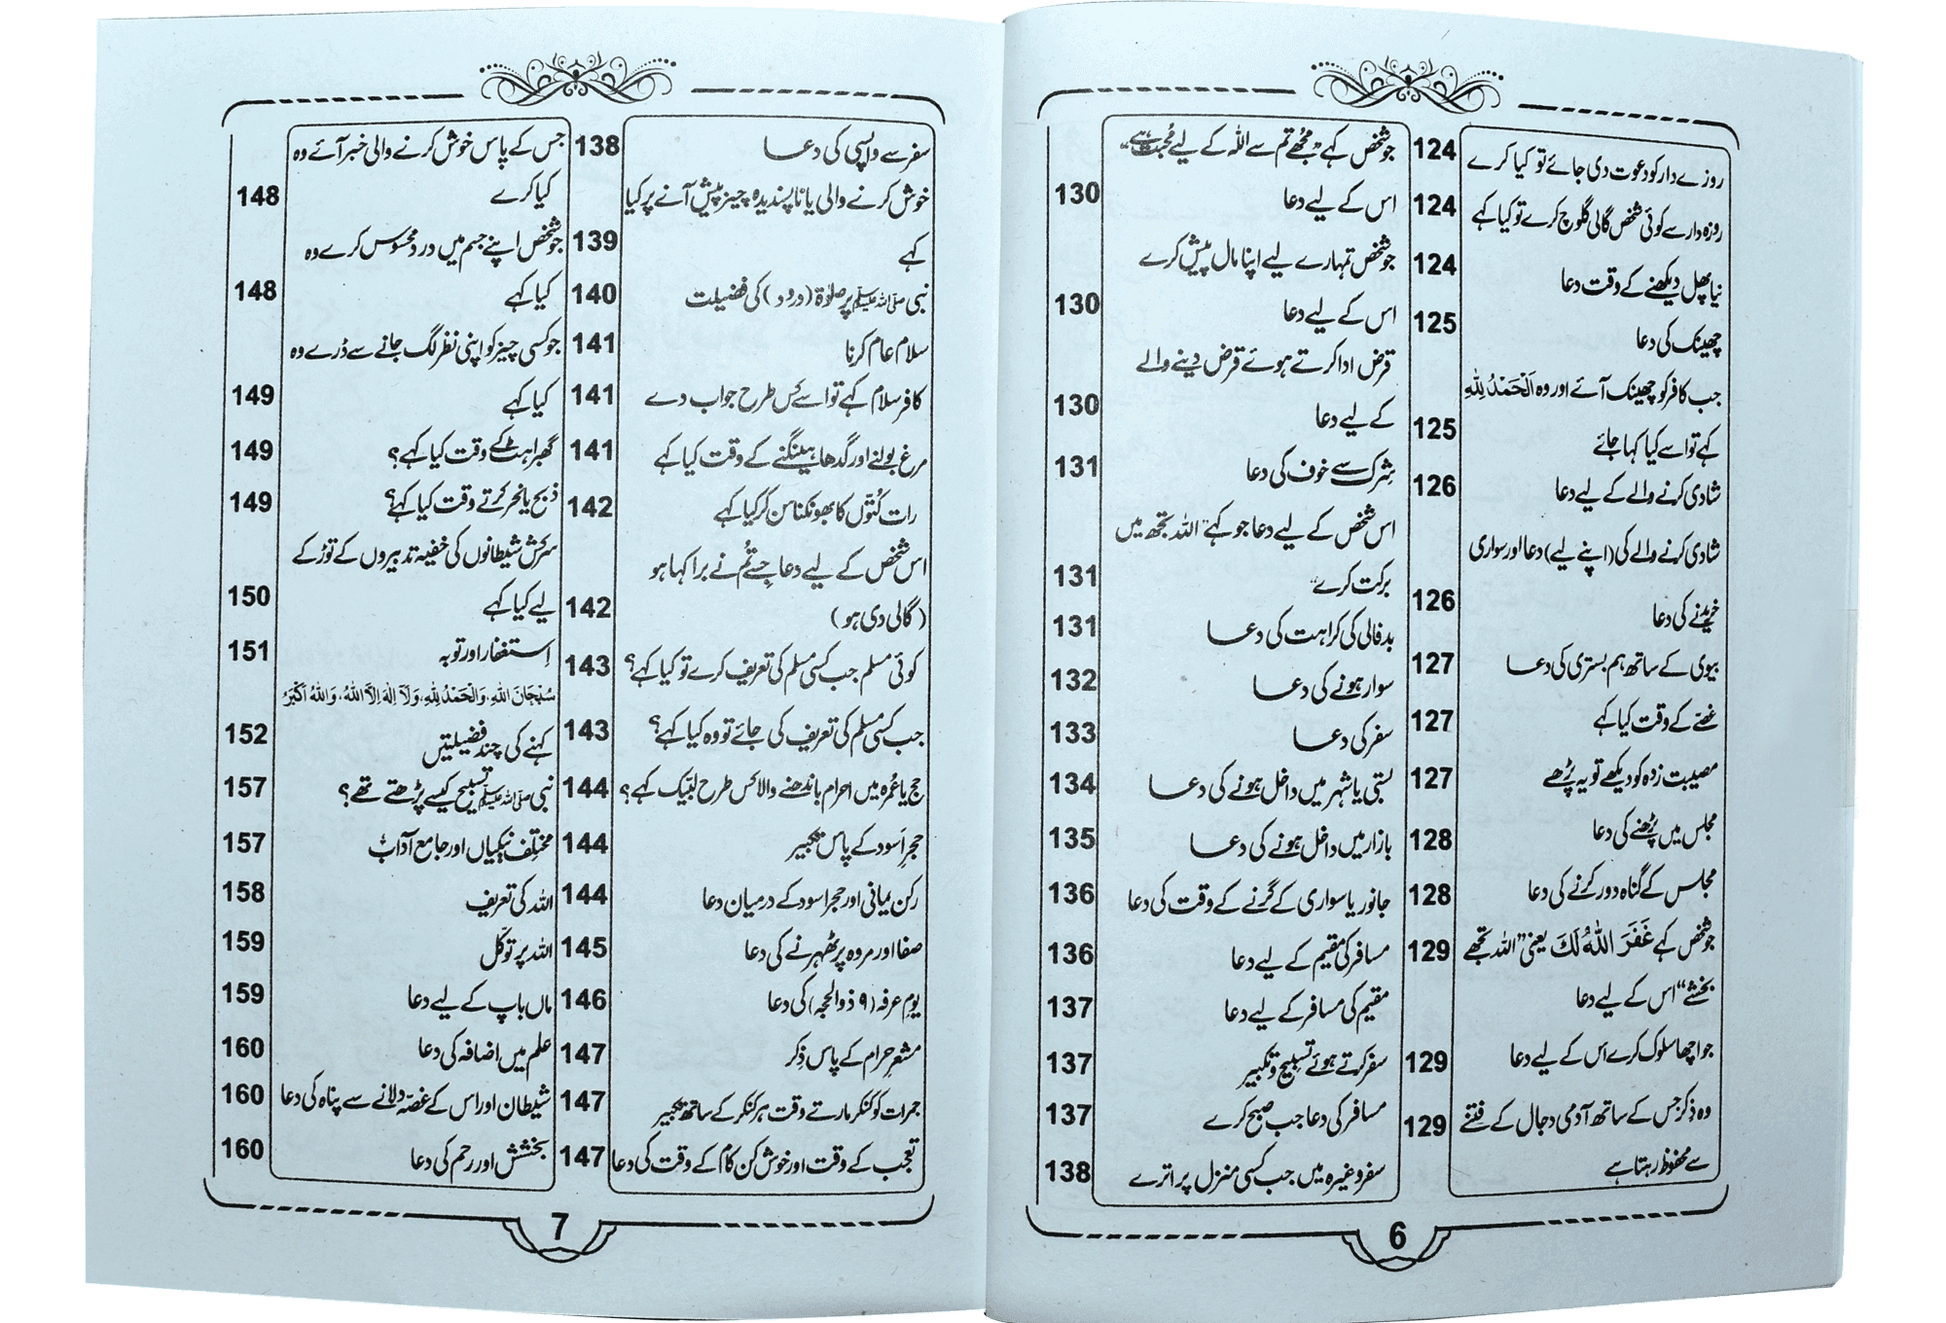 روزے دار کو دعوت دی جائے تو کیا کرے 124
روزہ دار سے کوئی شخص گالی گلوچ کرے تو کیا کہے 124
نیا پھل دیکھنے کے وقت دعا 124
چھینک کی دعا 125
جب کافر کو چھینک آئے اور وہ اَلْحَمْدُ لِلّٰهِ
کہے تو اسے کیا کہا جائے 125
شادی کرنے والے کے لیے دعا 126
شادی کرنے والے کی (اپنے لیے) دعا اور سواری
خریدنے کی دعا 126
بیوی کے ساتھ ہم بستری کی دعا 127
غصّے کے وقت کیا کہے 127
مصیبت زدہ کو دیکھے تو یہ پڑھے 127
مجلس میں پڑھنے کی دعا 128
مجلس کے گناہ دور کرنے کی دعا 128
جو شخص کہے غَفَرَ اللّٰهُ لَكَ یعنی ”اللہ تجھے 129
بخشے“ اس کے لیے دعا
جو اچھا سلوک کرے اس کے لیے دعا 129
وہ ذکر جس کے ساتھ آدمی دجال کے فتنے 129
سے محفوظ رہتا ہے
جو شخص کہے ”مجھے تم سے اللہ کے لیے مُحبت ہے“
اس کے لیے دعا 130
جو شخص تمہارے لیے اپنا مال پیش کرے
اس کے لیے دعا 130
قرض ادا کرتے ہوئے قرض دینے والے
کے لیے دعا 130
شِرک سے خوف کی دعا 131
اس شخص کے لیے دعا جو کہے ”اللہ تجھ میں
برکت کرے“ 131
بدفالی کی کراہت کی دعا 131
سوار ہونے کی دعا 132
سفر کی دعا 133
بستی یا شہر میں داخل ہونے کی دعا 134
بازار میں داخل ہونے کی دعا 135
جانور یا سواری کے گرنے کے وقت کی دعا 136
مسافر کی مقیم کے لیے دعا 136
مقیم کی مسافر کے لیے دعا 137
سفر کرتے ہوئے تسبیح و تکبیر 137
مسافر کی دعا جب صبح کرے 137
سفر وغیرہ میں جب کسی منزل پر اترے 138
6
سفر سے واپسی کی دعا 138
خوش کرنے والی یا ناپسندیدہ چیز پیش آنے پر کیا
کہے 139
نبی صلی اللہ علیہ وسلم پر صلوٰۃ (درود) کی فضیلت 140
سلام عام کرنا 141
کافر سلام کہے تو اسے کس طرح جواب دے 141
مرغ بولنے اور گدھا ہینگنے کے وقت کیا کہے 141
رات کُتّوں کا بھونکنا سن کر کیا کہے 142
اس شخص کے لیے دعا جسے تُم نے برا کہا ہو
(گالی دی ہو) 142
کوئی مسلم جب کسی مسلم کی تعریف کرے تو کیا کہے؟ 143
جب کسی مسلم کی تعریف کی جائے تو وہ کیا کہے؟ 143
حج یا عُمرہ میں احرام باندھنے والا کس طرح لبّیک کہے؟ 144
حجرِ اَسود کے پاس تکبیر 144
رکن یمانی اور حجر اسود کے درمیان دعا 144
صفا اور مروہ پر ٹھہرنے کی دعا 145
یومِ عرفہ (۹ ذوالحجہ) کی دعا 146
مشعرِ حرام کے پاس ذِکر 147
جمرات کو کنکر مارتے وقت ہر کنکر کے ساتھ تکبیر 147
تعجب کے وقت اور خوش کن کام کے وقت کی دعا 147
جس کے پاس خوش کرنے والی خبر آئے وہ
کیا کرے 148
جو شخص اپنے جسم میں درد محسوس کرے وہ
کیا کہے 148
جو کسی چیز کو اپنی نظر لگ جانے سے ڈرے وہ
کیا کہے 149
گھبراہٹ کے وقت کیا کہے؟ 149
ذبح یا نحر کرتے وقت کیا کہے؟ 149
سرکش شیطانوں کی خفیہ تدبیروں کے توڑ کے
لیے کیا کہے 150
اِستغفار اور توبہ 151
سُبْحَانَ اللهِ، وَالْحَمْدُ لِلّٰهِ، وَلَا اِلٰهَ اِلَّا اللهُ، وَاللهُ اَكْبَرُ
کہنے کی چند فضیلتیں 152
نبی صلی اللہ علیہ وسلم تسبیح کیسے پڑھتے تھے؟ 157
مختلِف نیکیاں اور جامع آداب 157
اللہ کی تعریف 158
اللہ پر توکّل 159
ماں باپ کے لیے دعا 159
علم میں اضافہ کی دعا 160
شیطان اور اس کے غصّہ دلانے سے پناہ کی دعا 160
بخشش اور رحم کی دعا 160
7